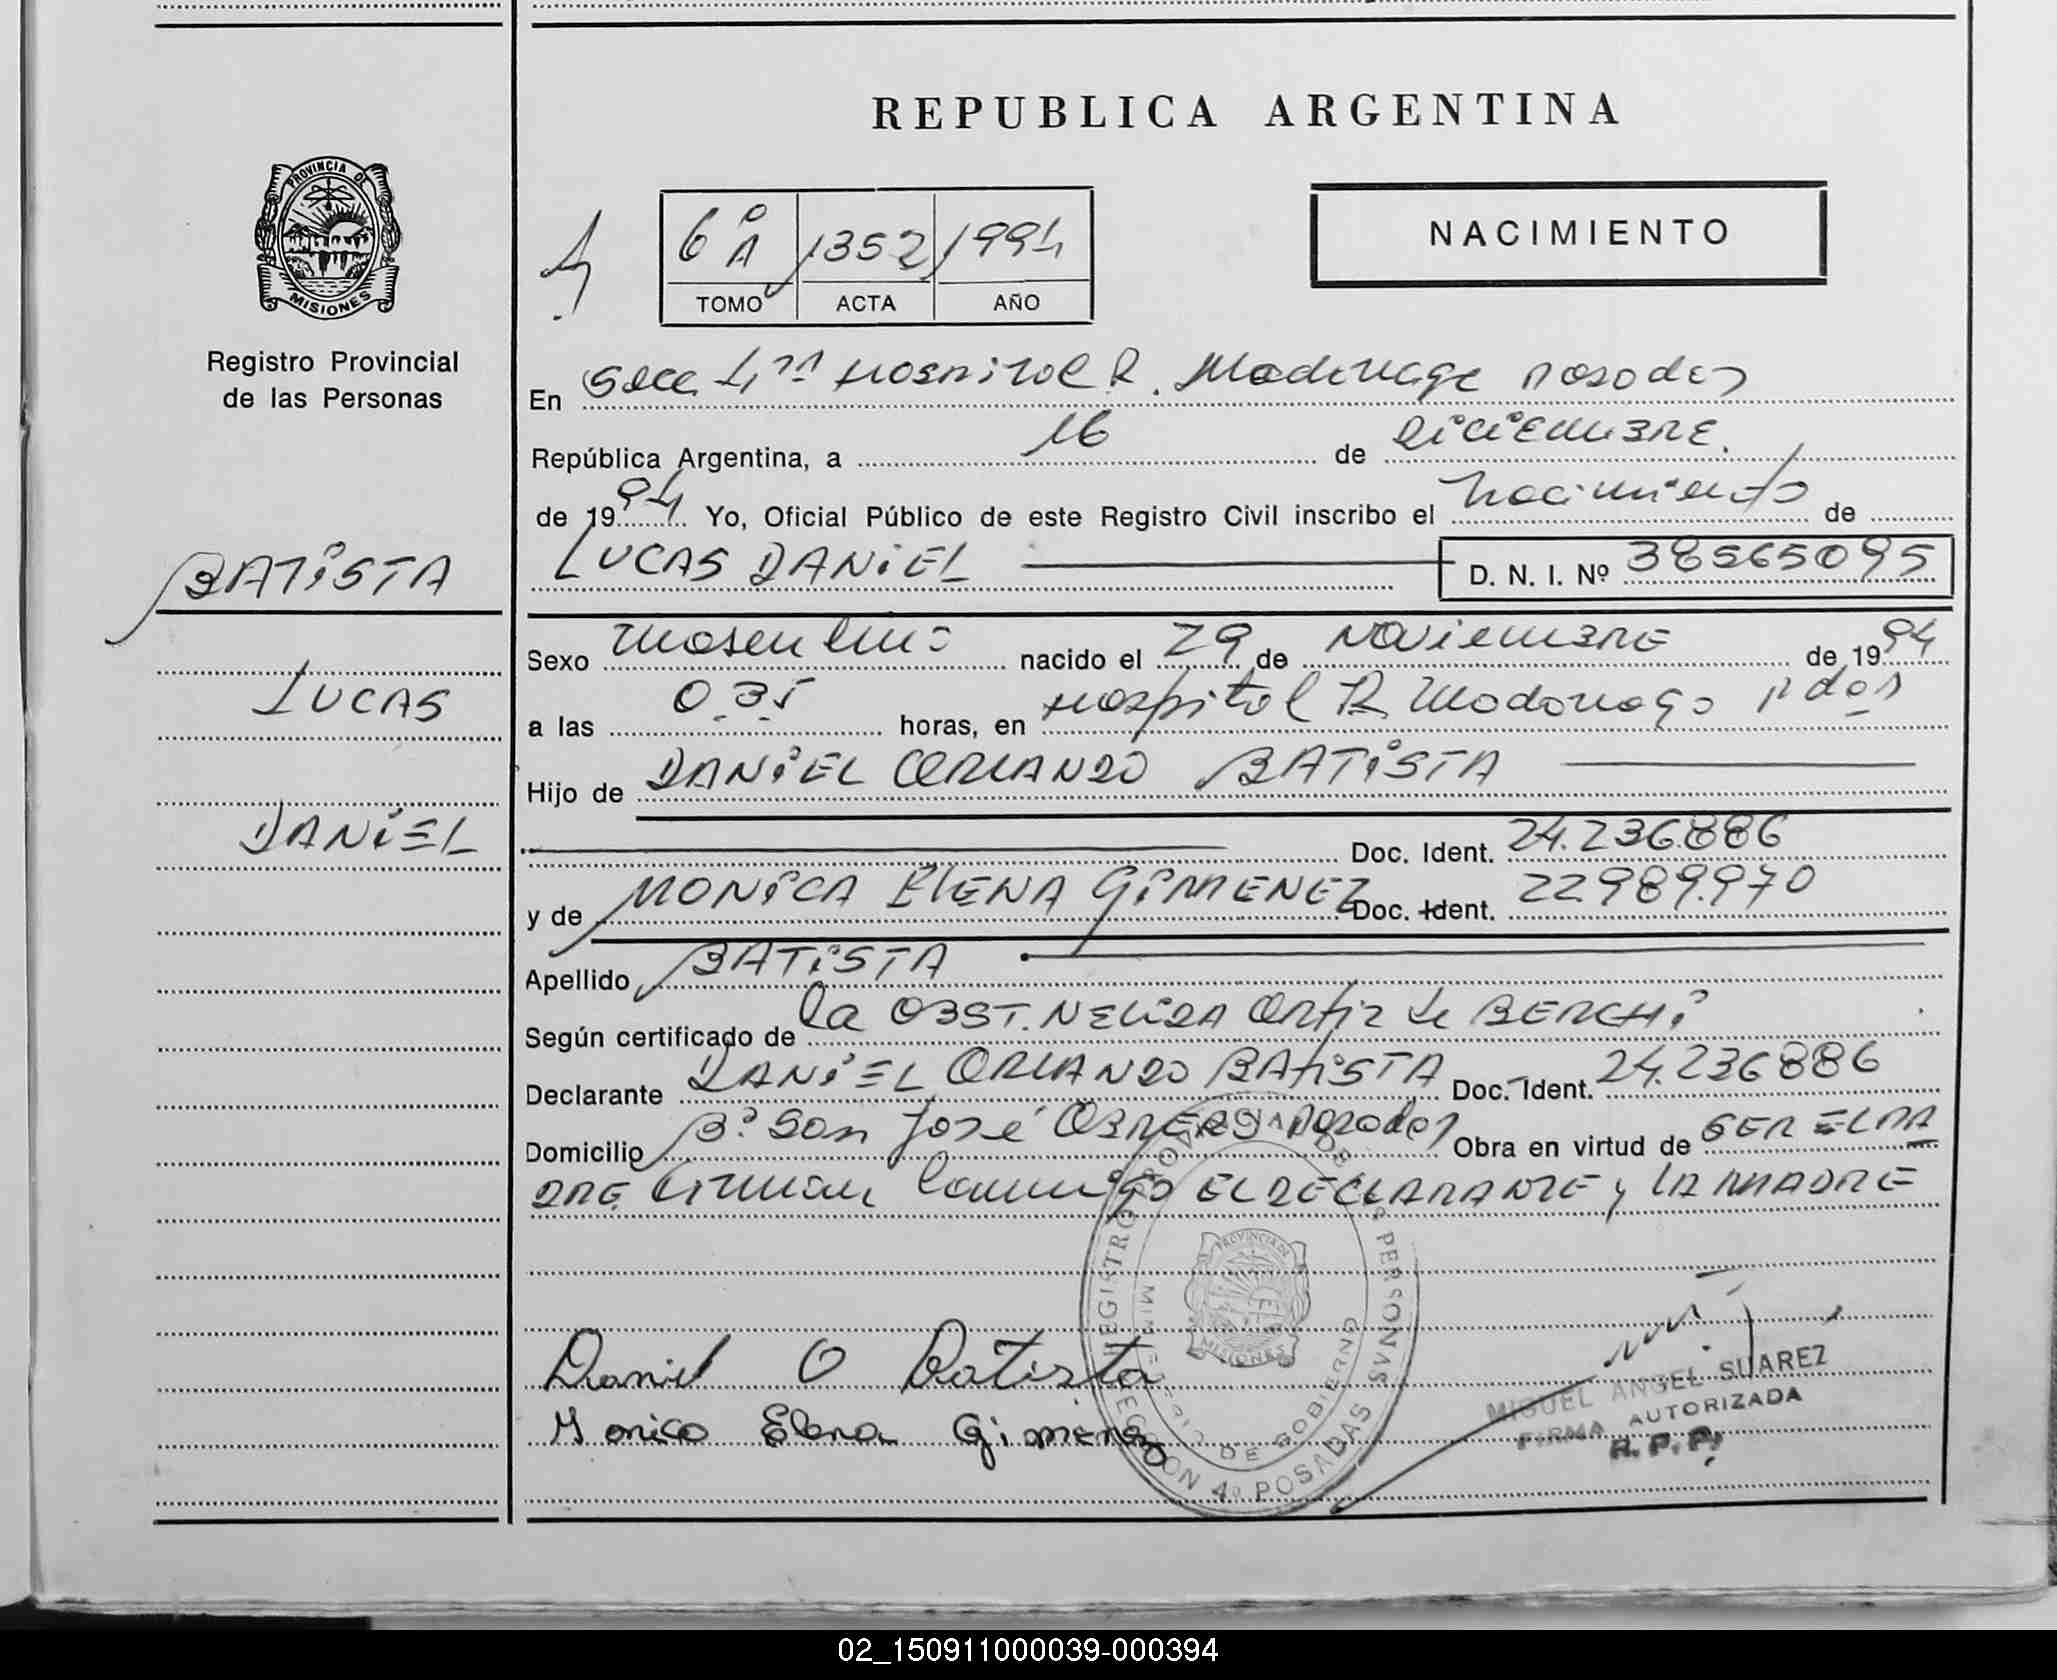 REPUBLICA ARGENTINA
PROVINCIA DE
MISIONES
Registro Provincial
de las Personas
4
6º A 1352 1994
TOMO ACTA AÑO
NACIMIENTO
En Secc 4ta Hospital R. Madariaga Posadas
República Argentina, a 16 de Diciembre.
de 1994 Yo, Oficial Público de este Registro Civil inscribo el Nacimiento de
LUCAS DANiEL D. N. I. Nº 38565095
BATiSTA
LUCAS
DANiEL
Sexo masculino nacido el 29 de NOViembRE de 1994
a las 0.35 horas, en Hospital R. Madariaga Pdas
Hijo de DANiEL ORLANDO BATiSTA
Doc. Ident. 24.236.886
y de MONiCA ELENA GiMENEZ Doc. Ident. 22.989.970
Apellido BATiSTA
Según certificado de la OBST. NELiDA Ortiz de BERCHi
Declarante DANiEL ORLANDO BATiSTA Doc. Ident. 24.236886
Domicilio Bº San José OBRERO Posadas Obra en virtud de SER EL PA
DRE. Firman conmigo EL DECLARANTE y LA MADRE
REGISTRO PROVINCIAL DE LAS PERSONAS
MINISTERIO DE GOBIERNO
PROVINCIA DE
MISIONES
SECCION 4º POSADAS
Daniel O Batista
Monica Elena Gimenez
MIGUEL ANGEL SUAREZ
FIRMA AUTORIZADA
R. P. P.
02_150911000039-000394